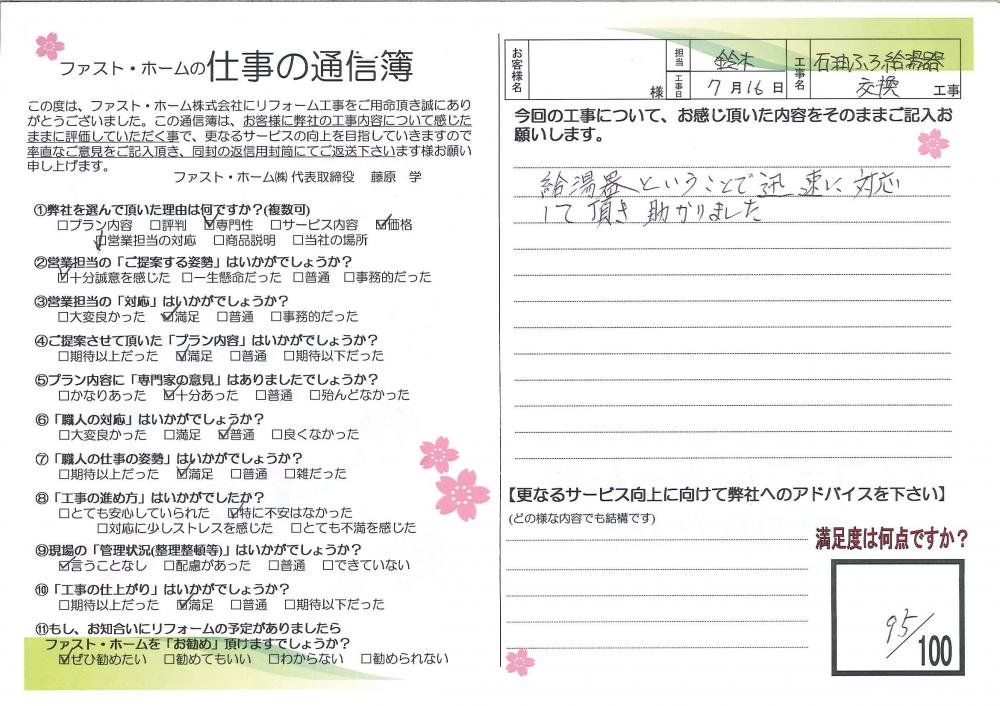 ファスト・ホームの仕事の通信簿
この度は、ファスト・ホーム株式会社にリフォーム工事をご用命頂き誠にあり
がとうございました。この通信簿は、お客様に弊社の工事内容について感じた
ままに評価していただく事で、更なるサービスの向上を目指していきますので
率直なご意見をご記入頂き、同封の返信用封筒にてご返送下さいます様お願い
申し上げます。
ファスト・ホーム㈱ 代表取締役 藤原 学
①弊社を選んで頂いた理由は何ですか?(複数可)
□プラン内容 □評判 ☑専門性 □サービス内容 ☑価格
☑営業担当の対応 □商品説明 □当社の場所
②営業担当の「ご提案する姿勢」はいかがでしょうか?
☑十分誠意を感じた □一生懸命だった □普通 □事務的だった
③営業担当の「対応」はいかがでしょうか?
□大変良かった ☑満足 □普通 □事務的だった
④ご提案させて頂いた「プラン内容」はいかがでしょうか?
□期待以上だった ☑満足 □普通 □期待以下だった
⑤プラン内容に「専門家の意見」はありましたでしょうか?
□かなりあった ☑十分あった □普通 □殆んどなかった
⑥「職人の対応」はいかがでしょうか?
□大変良かった □満足 ☑普通 □良くなかった
⑦「職人の仕事の姿勢」はいかがでしょうか?
□期待以上だった ☑満足 □普通 □雑だった
⑧「工事の進め方」はいかがでしたか?
□とても安心していられた ☑特に不安はなかった
□対応に少しストレスを感じた □とても不満を感じた
⑨現場の「管理状況(整理整頓等)」はいかがでしょうか?
☑言うことなし □配慮があった □普通 □できていない
⑩「工事の仕上がり」はいかがでしょうか?
□期待以上だった ☑満足 □普通 □期待以下だった
⑪もし、お知合いにリフォームの予定がありましたら
ファスト・ホームを「お勧め」頂けますでしょうか?
☑ぜひ勧めたい □勧めてもいい □わからない □勧められない
お客様名 様 担当 鈴木 工事日 7月16日 工事名 石油ふろ給湯器
交換 工事
今回の工事について、お感じ頂いた内容をそのままご記入お
願いします。
給湯器ということで迅速に対応
して頂き助かりました
【更なるサービス向上に向けて弊社へのアドバイスを下さい】
(どの様な内容でも結構です)
満足度は何点ですか?
95/100